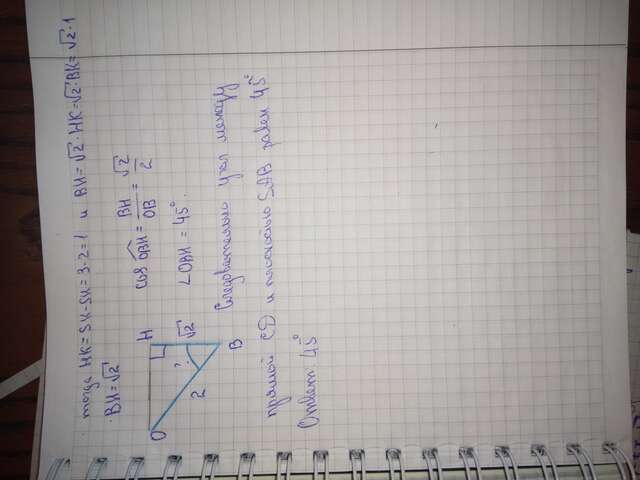 тогда HK=SK-SH=3-2=1 и BH=√2·HK=√2·BK=√2·1
BH=√2
cos OBH = BH/OB = √2/2
∠OBH = 45°.
O
H
√2
?
2
B
Следовательно угол между
прямой CD и плоскостью SAB равен 45°
Ответ 45°